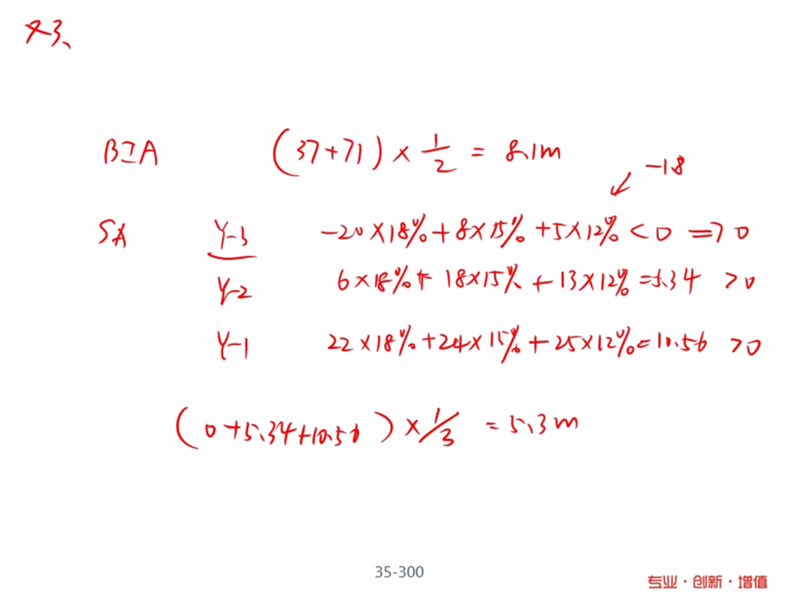 BIA (37+71) × 1/2 = 8.1m
-1.8
SA Y-3 -20×18%+8×15%+5×12%<0 => 0
Y-2 6×18%+18×15%+13×12%=5.34 >0
Y-1 22×18%+24×15%+25×12%=10.56 >0
(0+5.34+10.56) × 1/3 = 5.3m
35-300
专业·创新·增值